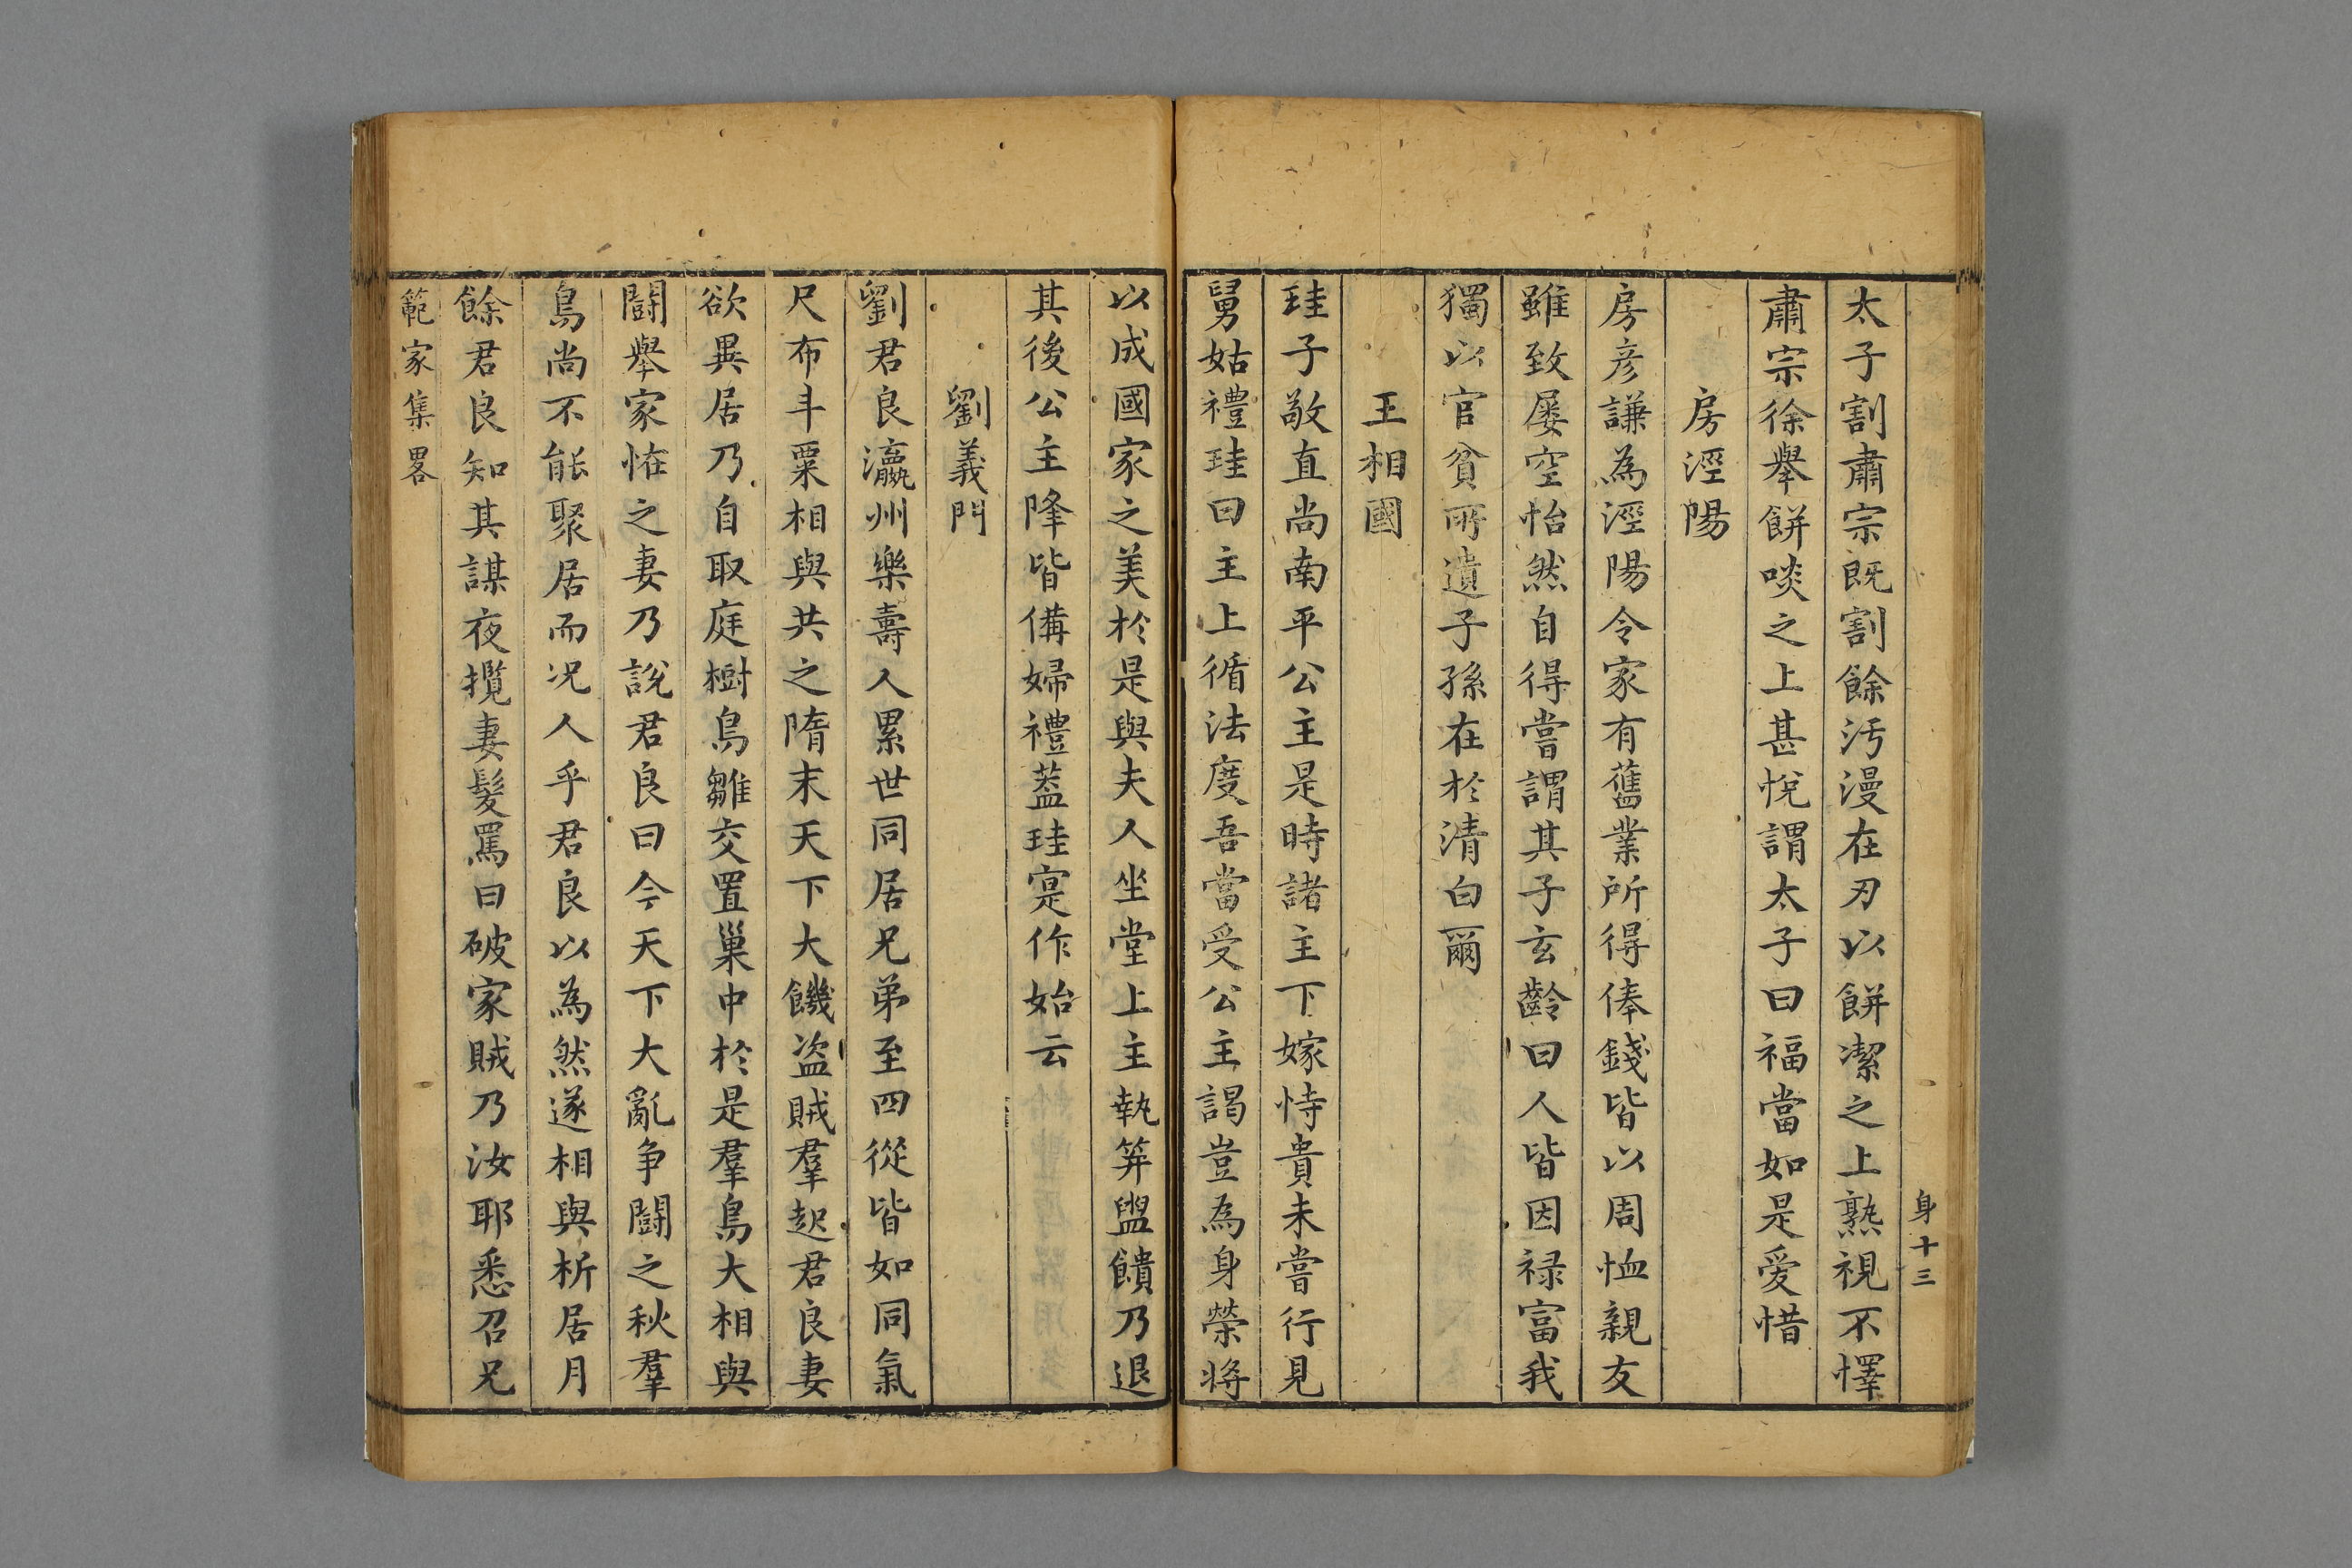 身十三
太子割肅宗既割餘汚漫在刃以餅潔之上熟視不懌
肅宗徐舉餅啖之上甚悅謂太子曰福當如是愛惜
房涇陽
房彦謙為涇陽令家有舊業所得俸錢皆以周恤親友
雖致屡空怡然自得嘗謂其子玄齡曰人皆因禄富我
獨以官貧所遺子孫在於清白爾
王相國
珪子敬直尚南平公主是時諸主下嫁恃貴未嘗行見
舅姑禮珪曰主上循法度吾當受公主謁豈為身榮将
以成國家之美於是與夫人坐堂上主執笲盥饋乃退
其後公主降皆備婦禮葢珪寔作始云
劉義門
劉君良瀛州樂壽人累世同居兄弟至四從皆如同氣
尺布斗粟相與共之隋末天下大饑盗賊羣起君良妻
欲異居乃自取庭樹鳥雛交置巢中於是羣鳥大相與
鬪舉家恠之妻乃說君良曰今天下大亂争鬪之秋羣
鳥尚不能聚居而况人乎君良以為然遂相與析居月
餘君良知其謀夜攬妻髮罵曰破家賊乃汝耶悉召兄
範家集畧